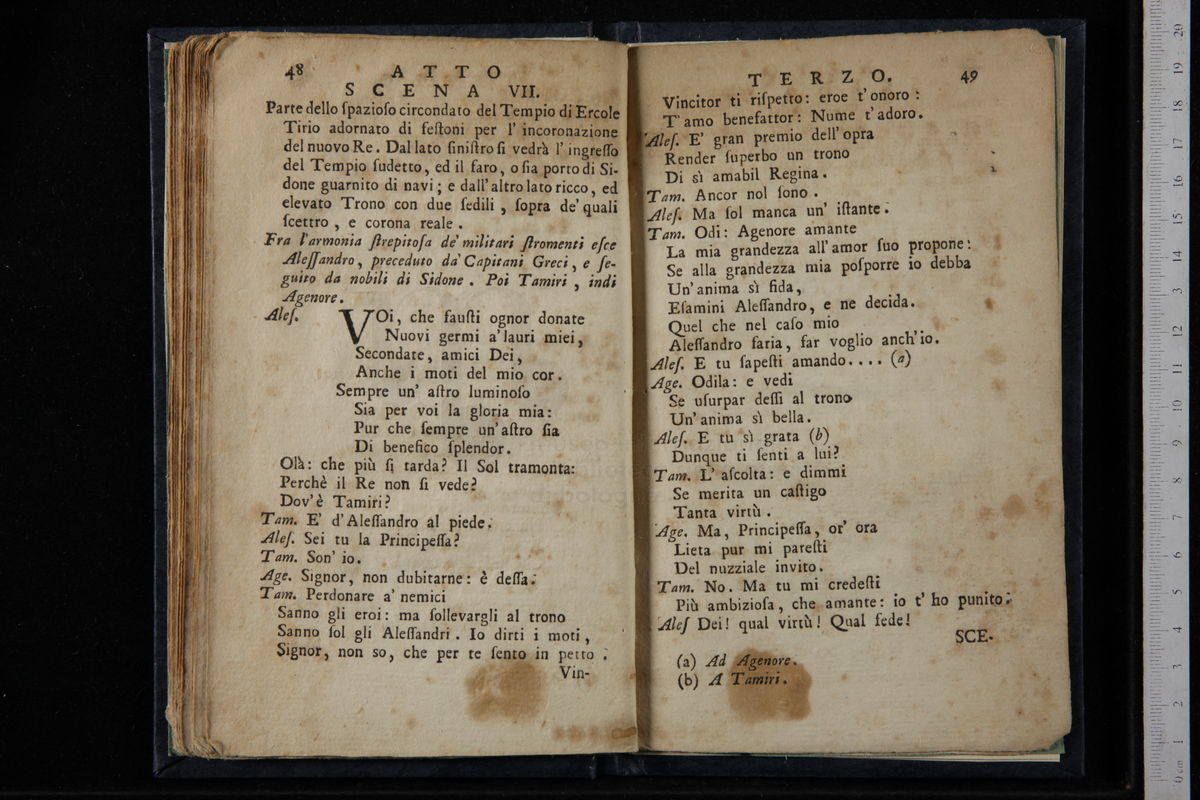 48 ATTO
SCENA VII.
Parte dello ſpazioſo circondato del Tempio di Ercole
Tirio adornato di feſtoni per l' incoronazione
del nuovo Re. Dal lato ſiniſtro ſi vedrà l' ingreſſo
del Tempio ſudetto, ed il faro, o ſia porto di Si-
done guarnito di navi; e dall' altro lato ricco, ed
elevato Trono con due ſedili, ſopra de' quali
ſcettro, e corona reale.
Fra l'armonia ſtrepitoſa de' militari ſtromenti eſce
Aleſſandro, preceduto da' Capitani Greci, e ſe-
guito da nobili di Sidone. Poi Tamiri, indi
Agenore.
Aleſ. VOi, che fauſti ognor donate
Nuovi germi a' lauri miei,
Secondate, amici Dei,
Anche i moti del mio cor.
Sempre un' aſtro luminoſo
Sia per voi la gloria mia:
Pur che ſempre un' aſtro ſia
Di benefico ſplendor.
Olà: che più ſi tarda? Il Sol tramonta:
Perchè il Re non ſi vede?
Dov' è Tamiri?
Tam. E' d' Aleſſandro al piede.
Aleſ. Sei tu la Principeſſa?
Tam. Son' io.
Age. Signor, non dubitarne: è deſſa.
Tam. Perdonare a' nemici
Sanno gli eroi: ma ſollevargli al trono
Sanno ſol gli Aleſſandri. Io dirti i moti,
Signor, non so, che per te ſento in petto.
Vin-
TERZO. 49
Vincitor ti riſpetto: eroe t' onoro:
T' amo benefattor: Nume t' adoro.
Aleſ. E' gran premio dell' opra
Render ſuperbo un trono
Di sì amabil Regina.
Tam. Ancor nol ſono.
Aleſ. Ma ſol manca un' iſtante.
Tam. Odi: Agenore amante
La mia grandezza all' amor ſuo propone:
Se alla grandezza mia poſporre io debba
Un' anima sì fida,
Eſamini Aleſſandro, e ne decida.
Quel che nel caſo mio
Aleſſandro faria, far voglio anch' io.
Aleſ. E tu ſapeſti amando.... (a)
Age. Odila: e vedi
Se uſurpar deſſi al trono
Un' anima sì bella.
Aleſ. E tu sì grata (b)
Dunque ti ſenti a lui?
Tam. L' aſcolta: e dimmi
Se merita un caſtigo
Tanta virtù.
Age. Ma, Principeſſa, or' ora
Lieta pur mi pareſti
Del nuzziale invito.
Tam. No. Ma tu mi credeſti
Più ambizioſa, che amante: io t' ho punito.
Aleſ Dei! qual virtù! Qual fede!
SCE-
(a) Ad Agenore.
(b) A Tamiri.
0 cm 1 2 3 4 5 6 7 8 9 10 11 12 13 14 15 16 17 18 19 20